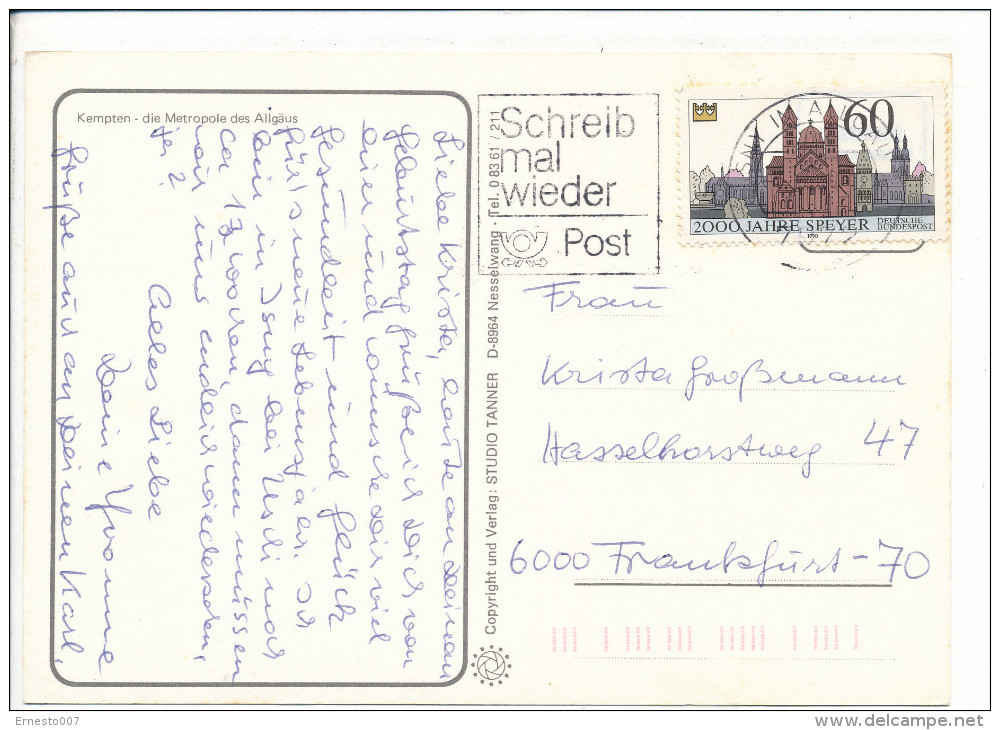 Kempten - die Metropole des Allgäus
Liebe Krista, heute an Deinem
Geburtstag grüße ich Dich von
hier und wünsche Dir viel
Gesundheit und Glück
für's neue Lebensjahr. Ich
bin in Isny bei Uschi noch
ca 13 Wochen, dann müssen
wir uns endlich wiedersehen,
ja?
Alles Liebe
Deine Yvonne
Grüße auch an Deinen Karl.
Copyright und Verlag: STUDIO TANNER D-8964 Nesselwang · Tel. 0 83 61 / 211
Schreib
mal
wieder
Post
60
2000 JAHRE SPEYER
DEUTSCHE
BUNDESPOST
1990
Frau
Krista Großmann
Hasselhorstweg 47
6000 Frankfurt-70
Ernesto007
delcampe.net